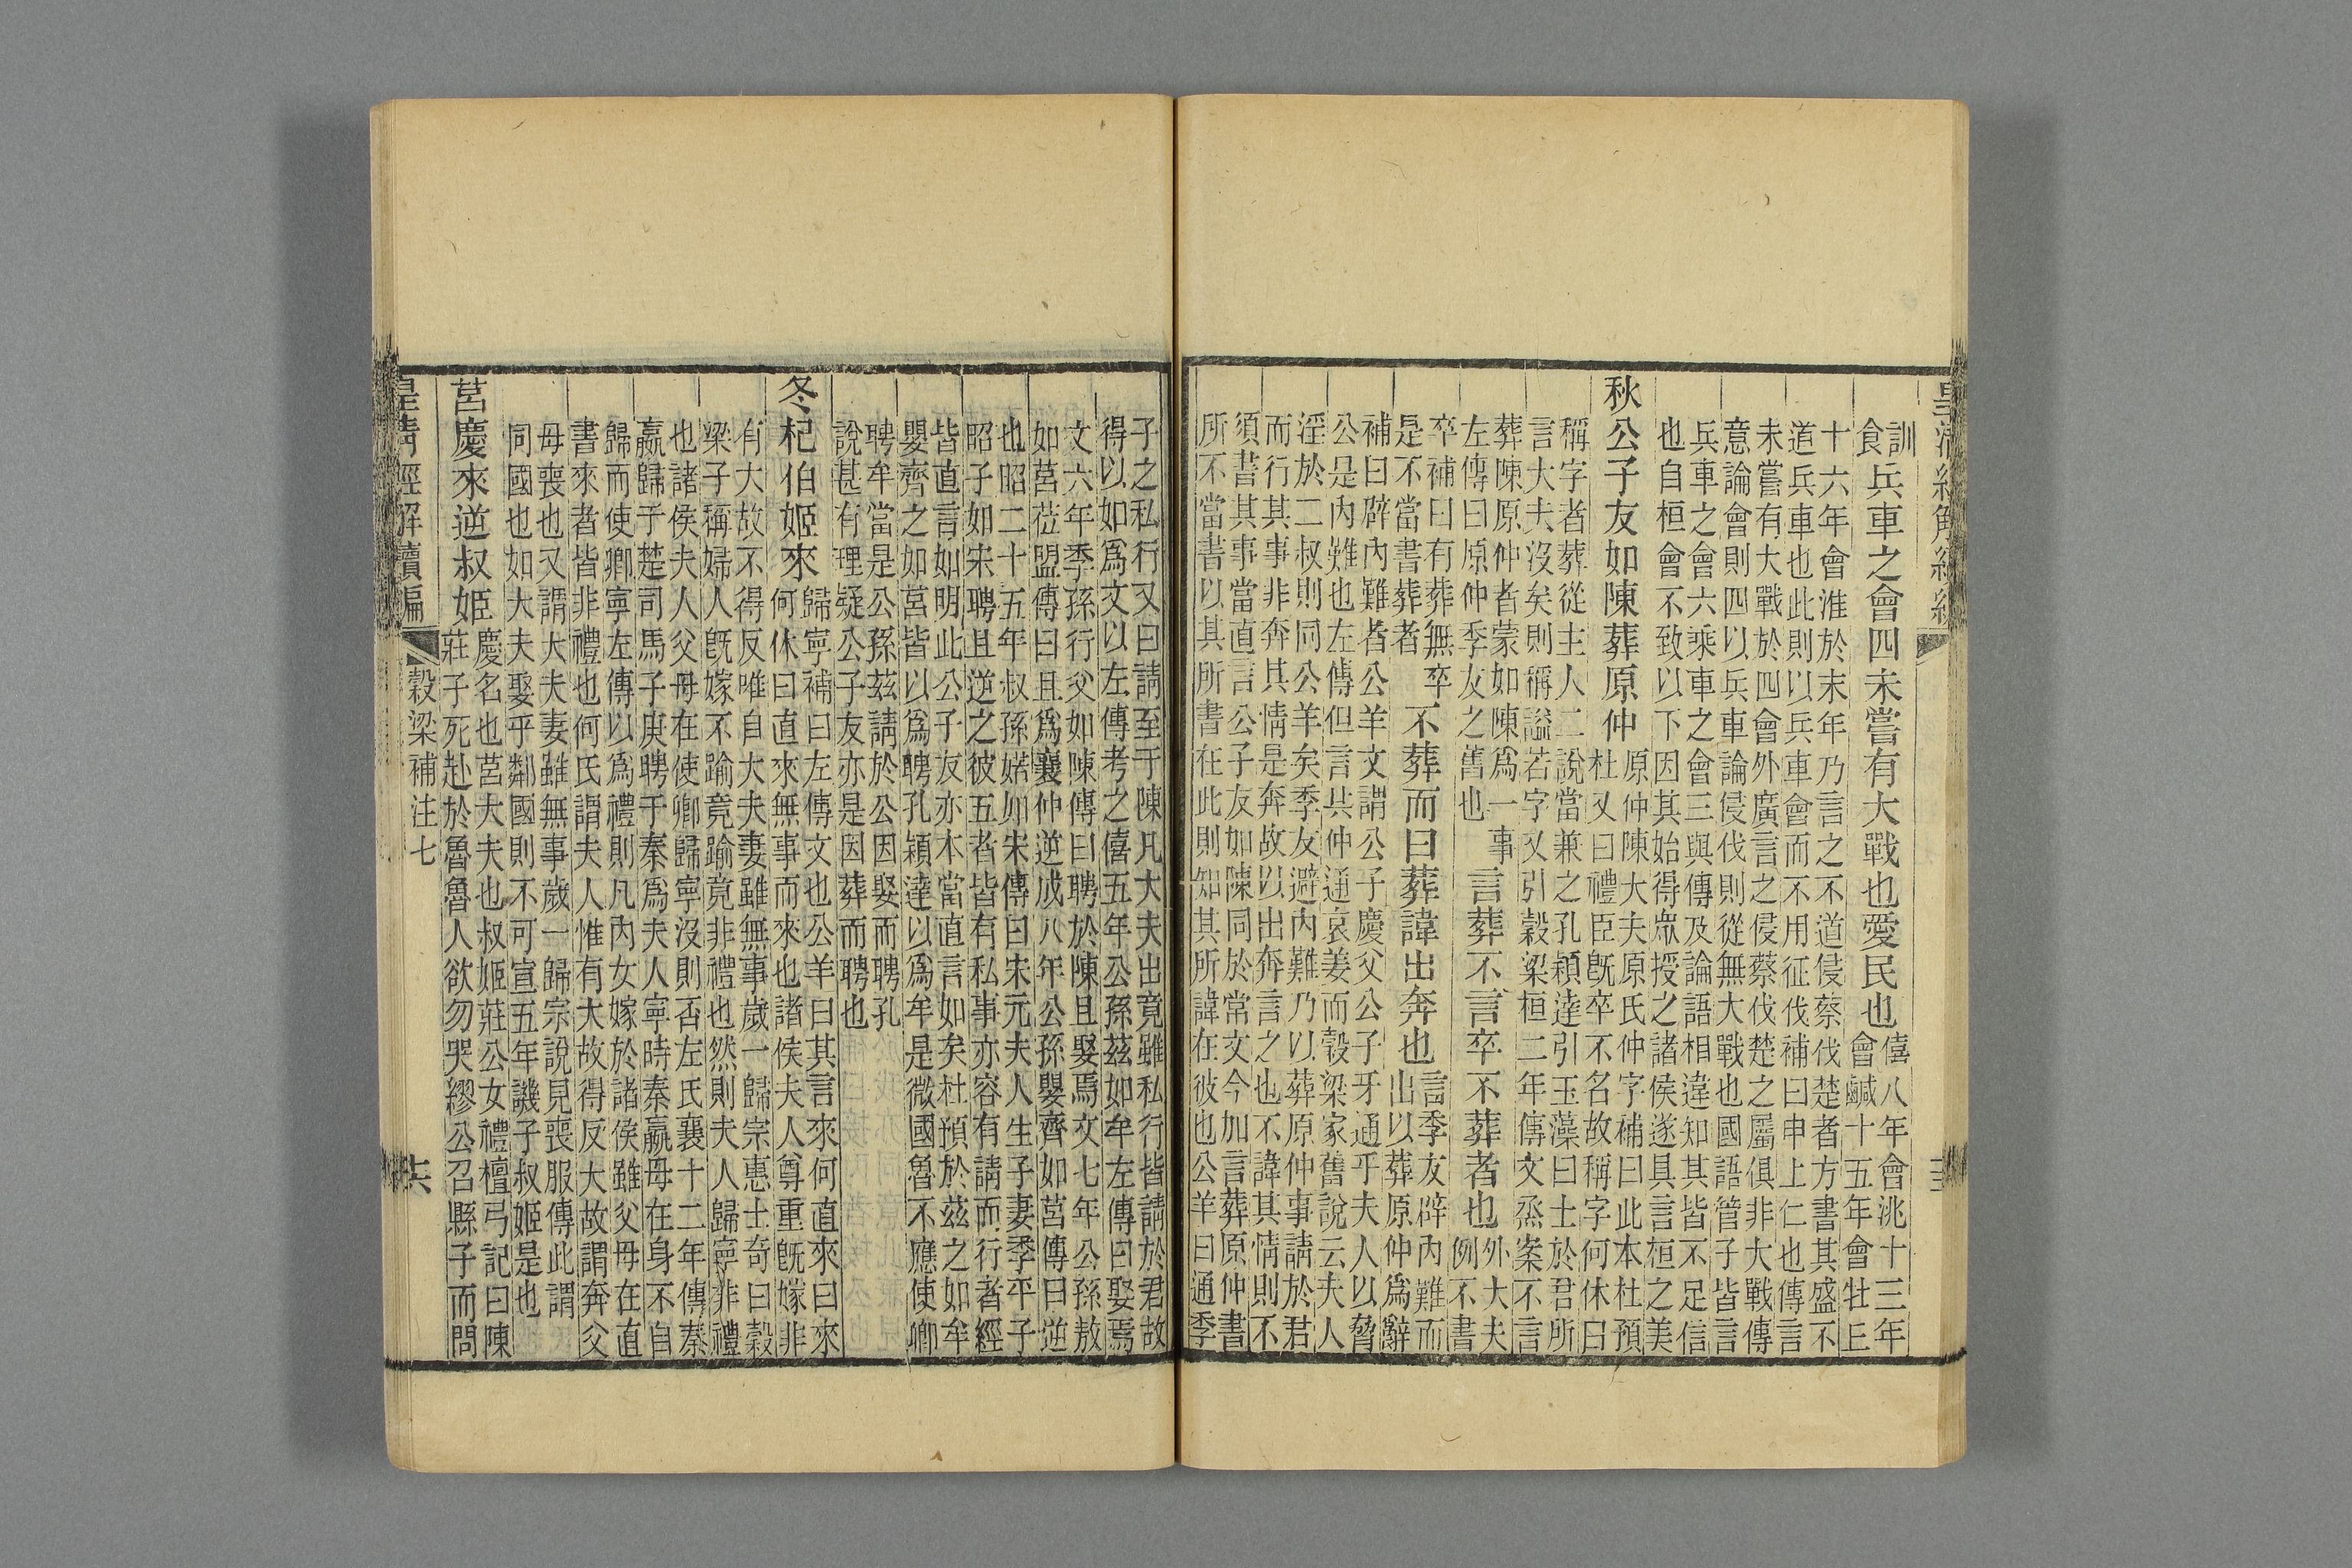 訓
食
兵車之會四未嘗有大戰也愛民也
僖八年會洮十三年
會鹹十五年會牡丘
十六年會淮於末年乃言之不道侵蔡伐楚者方書其盛不
道兵車也此則以兵車會而不用征伐補曰申上仁也傳言
未嘗有大戰於四會外廣言之侵蔡伐楚之屬俱非大戰傳
意論會則四以兵車論侵伐則從無大戰也國語管子皆言
兵車之會六乘車之會三與傳及論語相違知其皆不足信
也自桓會不致以下因其始得眾授之諸侯遂具言桓之美
秋公子友如陳葬原仲
原仲陳大夫原氏仲字補曰此本杜預
杜又曰禮臣既卒不名故稱字何休曰
稱字者葬從主人二說當兼之孔穎達引玉藻曰士於君所
言大夫沒矣則稱謚若字又引穀梁桓二年傳文烝案不言
葬陳原仲者蒙如陳爲一事
左傳曰原仲季友之舊也
言葬不言卒不葬者也
外大夫
例不書
卒補曰有葬無卒
是不當書葬者
不葬而曰葬諱出奔也
言季友辟內難而
出以葬原仲爲辭
補曰辟內難者公羊文謂公子慶父公子牙通乎夫人以脅
公是內難也左傳但言共仲通哀姜而穀梁家舊說云夫人
淫於二叔則同公羊矣季友避內難乃以葬原仲事請於君
而行其事非奔其情是奔故以出奔言之也不諱其情則不
須書其事當直言公子友如陳同於常文今加言葬原仲書
所不當書以其所書在此則知其所諱在彼也公羊曰通季
子之私行又曰請至于陳凡大夫出竟雖私行皆請於君故
得以如爲文以左傳考之僖五年公孫茲如牟左傳曰娶焉
文六年季孫行父如陳傳曰聘於陳且娶焉文七年公孫敖
如莒莅盟傳曰且爲襄仲逆成八年公孫嬰齊如莒傳曰逆
也昭二十五年叔孫婼如宋傳曰宋元夫人生子妻季平子
昭子如宋聘且逆之彼五者皆有私事亦容有請而行者經
皆直言如明此公子友亦本當直言如矣杜預於茲之如牟
嬰齊之如莒皆以爲聘孔穎達以爲牟是微國魯不應使卿
聘牟當是公孫茲請於公因娶而聘孔
說甚有理疑公子友亦是因葬而聘也
冬杞伯姬來
歸寧補曰左傳文也公羊曰其言來何直來曰來
何休曰直來無事而來也諸侯夫人尊重既嫁非
有大故不得反唯自大夫妻雖無事歲一歸宗惠士奇曰穀
梁子稱婦人既嫁不踰竟踰竟非禮也然則夫人歸寧非禮
也諸侯夫人父母在使卿歸寧沒則否左氏襄十二年傳秦
嬴歸子楚司馬子庚聘于秦爲夫人寧時秦嬴母在身不自
歸而使卿寧左傳以爲禮則凡內女嫁於諸侯雖父母在直
書來者皆非禮也何氏謂夫人惟有大故得反大故謂奔父
母喪也又謂大夫妻雖無事歲一歸宗說見喪服傳此謂
同國也如大夫娶乎鄰國則不可宣五年譏子叔姬是也
莒慶來逆叔姬
慶名也莒大夫也叔姬莊公女禮檀弓記曰陳
莊子死赴於魯魯人欲勿哭繆公召縣子而問
皇清經解續編
穀梁補注七